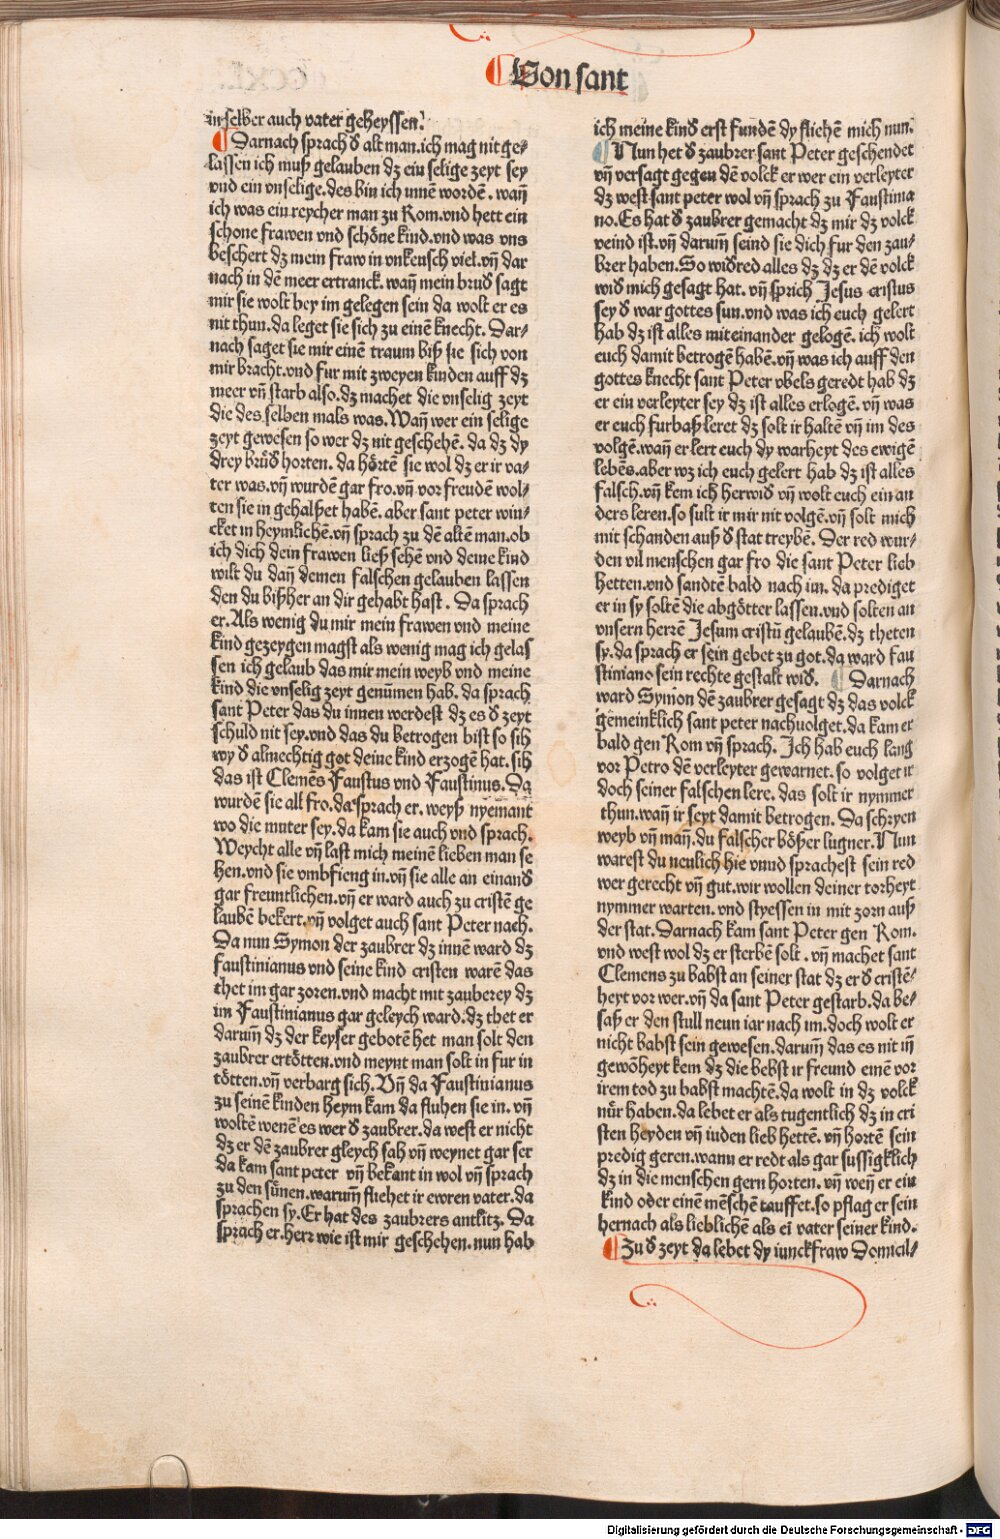 Von sant
in selber auch vater geheyssen.
Darnach sprach d̕ alt man. ich mag nit ge⸗
lassen ich muß gelauben dz ein selige zeyt sey
vnd ein vnselige. des bin ich innē wordē. wañ
ich was ein reycher man zu Rom. vnd hett ein
schone frawen vnd schöne kind. vnd was vns
beschert dz mein fraw in vnkeusch viel. vñ dar
nach in dē meer ertranck. wañ mein brud̕ sagt
mir sie wolt bey im gelegen sein da wolt er es
nit thun. da leget sie sich zu einē knecht. Dar⸗
nach saget sie mir einē traum biß sie sich von
mir bracht. vnd fur mit zweyen kinden auff dz
meer vñ starb also. dz machet die vnselig zeyt
die des selben mals was. Wañ wer ein selige
zeyt gewesen so wer dz nit geschehē. da dz dy
drey brüd̕ horten. da hörtē sie wol dz er ir va⸗
ter was. vñ wurdē gar fro. vñ vor freudē wol⸗
ten sie in gehalßet habē. aber sant peter win⸗
cket in heymlichē. vñ sprach zu dē altē man. ob
ich dich dein frawen ließ sehē vnd deine kind
wilt du dañ deinen falschen gelauben lassen
den du bißher an dir gehabt hast. Da sprach
er. Als wenig du mir mein frawen vnd meine
kind gezeygen magst als wenig mag ich gelas
sen ich gelaub das mir mein weyb vnd meine
kind die vnselig zeyt genūmen hab. da sprach
sant Peter das du innen werdest dz es d̕ zeyt
schuld nit sey. vnd das du betrogen bist so sih
wy d̕ almechtig got deine kind erzogē hat. sih
das ist Clemēs Faustus vnd Faustinus. Da
wurdē sie all fro. da sprach er. weyß nyemant
wo die muter sey. da kam sie auch vnd sprach.
Weycht alle vñ last mich meinē lieben man se
hen. vnd sie vmbfieng in. vñ sie alle an einand̕
gar freuntlichen. vñ er ward auch zu cristē ge
laubē bekert. vñ volget auch sant Peter nach.
Da nun Symon der zaubrer dz innē ward dz
faustinianus vnd seine kind cristen warē das
thet im gar zoren. vnd macht mit zauberey dz
im Faustinianus gar geleych ward. dz thet er
darum̄ dz der keyser gebotē het man solt den
zaubrer ertötten. vnd meynt man solt in fur in
tötten. vñ verbarg sich. Vñ da Faustinianus
zu seinē kinden heym kam da fluhen sie in. vñ
woltē wenē es wer d̕ zaubrer. da west er nicht
dz er dē zaubrer gleych sah vñ weynet gar ser
da kam sant peter vñ bekant in wol vñ sprach
zu den sünen. warum̄ fliehet ir ewren vater. da
sprachen sy. Er hat des zaubrers antlitz. Da
sprach er. herr wie ist mir geschehen. nun hab
ich meine kind erst fundē dy fliehē mich nun.
Nun het d̕ zaubrer sant Peter geschendet
vñ versagt gegen dē volck er wer ein verleyter
dz west sant peter wol vñ sprach zu Faustinia
no. Es hat d̕ zaubrer gemacht dz mir dz volck
veind ist. vñ darum̄ seind sie dich fur den zau⸗
brer haben. So wid̕red alles dz dz er dē volck
wid̕ mich gesagt hat. vñ sprich Jesus cristus
sey d̕ war gottes sun. vnd was ich euch gelert
hab dz ist alles miteinander gelogē. ich wolt
euch damit betrogē habē. vñ was ich auff den
gottes knecht sant Peter vbels geredt hab dz
er ein verleyter sey dz ist alles erlogē. vñ was
er euch furbaß leret dz solt ir haltē vñ im des
volgē. wañ er lert euch dy warheyt des ewigē
lebēs. aber wz ich euch gelert hab dz ist alles
falsch. vñ kem ich herwid̕ vñ wolt euch ein an
ders leren. so sult ir mir nit volgē. vñ solt mich
mit schanden auß d̕ stat treybē. Der red wur⸗
den vil menschen gar fro die sant Peter lieb
hetten. vnd sandtē bald nach im. da prediget
er in sy soltē die abgötter lassen. vnd solten an
vnsern herrē Jesum cristū gelaubē. dz theten
sy. da sprach er sein gebet zu got. da ward fau
stiniano sein rechte gestalt wid̕. Darnach
ward Symon dē zaubrer gesagt dz das volck
gemeinklich sant peter nachuolget. da kam er
bald gen Rom vñ sprach. Ich hab euch lang
vor Petro dē verleyter gewarnet. so volget ir
doch seiner falschen lere. das solt ir nymmer
thun. wañ ir seyt damit betrogen. Da schryen
weyb vñ mañ. du falscher bößer lugner. Nun
warest du neulich hie vnnd sprachest sein red
wer gerecht vñ gut. wir wollen deiner torheyt
nymmer warten. vnd styessen in mit zorn auß
der stat. Darnach kam sant Peter gen Rom.
vnd west wol dz er sterbē solt. vñ machet sant
Clemens zu babst an seiner stat dz er d̕ cristē⸗
heyt vor wer. vñ da sant Peter gestarb. da be⸗
saß er den stull neun iar nach im. doch wolt er
nicht babst sein gewesen. darum̄ das es nit in
gewōheyt kem dz die bebst ir freund einē vor
irem tod zu babst machtē. da wolt in dz volck
nür haben. da lebet er als tugentlich dz in cri
sten heyden vñ iuden lieb hettē. vñ hortē sein
predig geren. wann er redt als gar sussigklich
dz in die menschen gern horten. vñ weñ er ein
kind oder einē mēschē tauffet. so pflag er sein
hernach als lieblichē als ei vater seiner kind.
Zu d̕ zeyt da lebet dy iunckfraw Domicil⸗
Digitalisierung gefördert durch die Deutsche Forschungsgemeinschaft - DFG